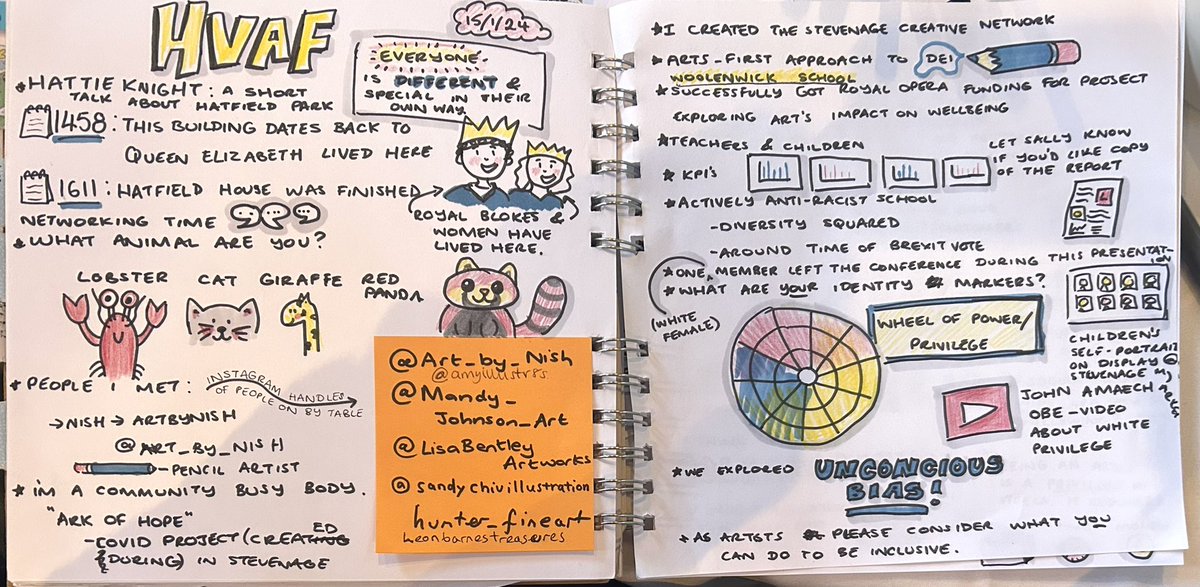 HVAF
15/1/24
EVERYONE
IS DIFFERENT &
SPECIAL IN THEIR
OWN WAY.
* HATTIE KNIGHT: A SHORT
TALK ABOUT HATFIELD PARK
1458: THIS BUILDING DATES BACK TO
QUEEN ELIZABETH LIVED HERE
1611: HATFIELD HOUSE WAS FINISHED
ROYAL BLOKES &
WOMEN HAVE
LIVED HERE.
NETWORKING TIME
* WHAT ANIMAL ARE YOU?
LOBSTER CAT GIRAFFE RED
PANDA
* PEOPLE I MET:
INSTAGRAM HANDLES
OF PEOPLE ON BY TABLE
→ NISH → ARTBYNISH
@ART_BY_NISH
- PENCIL ARTIST
* I'M A COMMUNITY BUSY BODY.
"ARK OF HOPE"
- COVID PROJECT (CREATED
(DURING) IN STEVENAGE
@Art_by_Nish
@amyillustr8s
@Mandy_
Johnson_Art
@LisaBentley
Artworks
@sandychivillustration
hunter_fineart
Leonbarnestreasures
* I CREATED THE STEVENAGE CREATIVE NETWORK
* ARTS-FIRST APPROACH TO DEI
WOOLENWICK SCHOOL
* SUCCESSFULLY GOT ROYAL OPERA FUNDING FOR PROJECT
EXPLORING ART'S IMPACT ON WELLBEING
* TEACHERS & CHILDREN
* KPI's
LET SALLY KNOW
IF YOU'D LIKE COPY
OF THE REPORT
* ACTIVELY ANTI-RACIST SCHOOL
- DIVERSITY SQUARED
- AROUND TIME OF BREXIT VOTE
* ONE MEMBER LEFT THE CONFERENCE DURING THIS PRESENTATION
* WHAT ARE YOUR IDENTITY MARKERS?
(WHITE
FEMALE)
WHEEL OF POWER/
PRIVILEGE
CHILDREN'S
SELF-PORTRAIT
ON DISPLAY @
STEVENAGE
JOHN AMAECH
OBE - VIDEO
ABOUT WHITE
PRIVILEGE
* WE EXPLORED UNCONCIOUS
BIAS!
* AS ARTISTS PLEASE CONSIDER WHAT YOU
CAN DO TO BE INCLUSIVE.